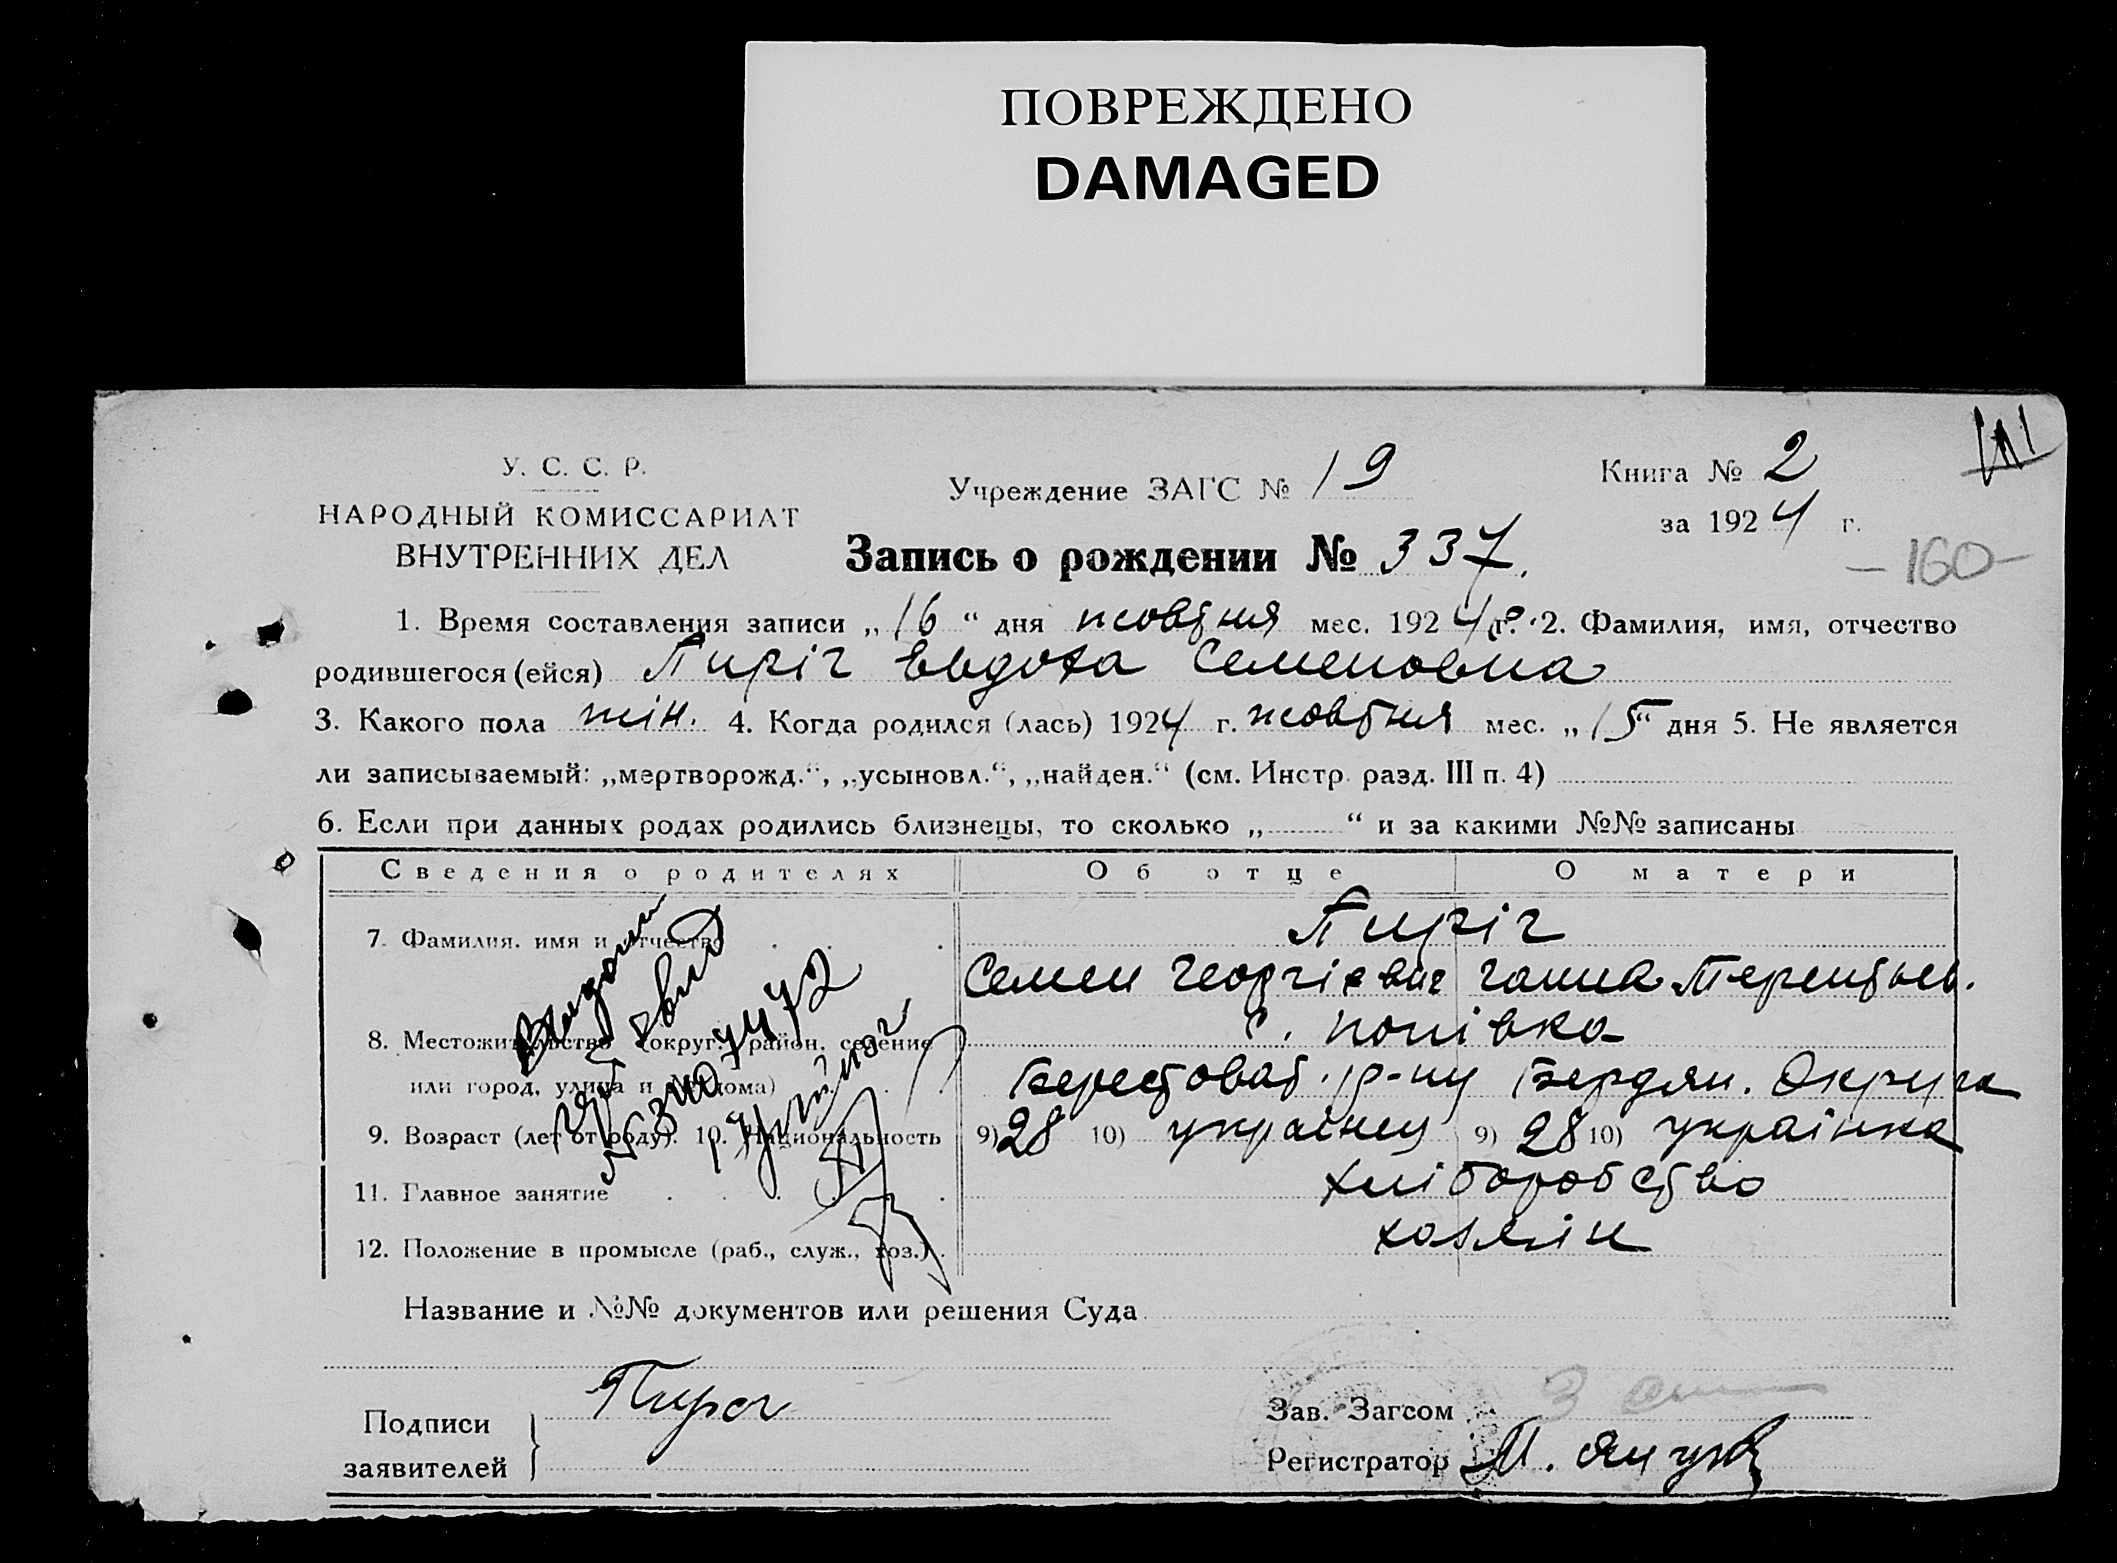 ПОВРЕЖДЕНО
DAMAGED
У. С. С. Р.
НАРОДНЫЙ КОМИССАРИАТ
ВНУТРЕННИХ ДЕЛ
Учреждение ЗАГС № 19
Книга № 2
за 1924 г.
Запись о рождении № 337.
-160-
1. Время составления записи „16“ дня жовтня мес. 1924 г. 2. Фамилия, имя, отчество
родившегося (ейся) Пиріг Євдоха Семеновна
3. Какого пола жін. 4. Когда родился (лась) 1924 г. жовтня мес. „15“ дня 5. Не является
ли записываемый: „мертворожд.“, „усыновл.“, „найден.“ (см. Инстр. разд. III п. 4)
6. Если при данных родах родились близнецы, то сколько „ “ и за какими №№ записаны
Сведения о родителях Об отце О матери
7. Фамилия, имя и отчество Пиріг
Семен Георгієвич Ганна Терентьев.
8. Местожительство (округ, район, селение с. Попівка
или город, улица и № дома) Берестоват. р-ну Бердян. Округа
9. Возраст (лет от роду). 10. Национальность 9) 28 10) українец 9) 28 10) українка
11. Главное занятие хліборобство
12. Положение в промысле (раб., служ., хоз.) хазяїн
Название и №№ документов или решения Суда
Подписи
заявителей
Пиріг
Зав. Загсом
Регистратор М.